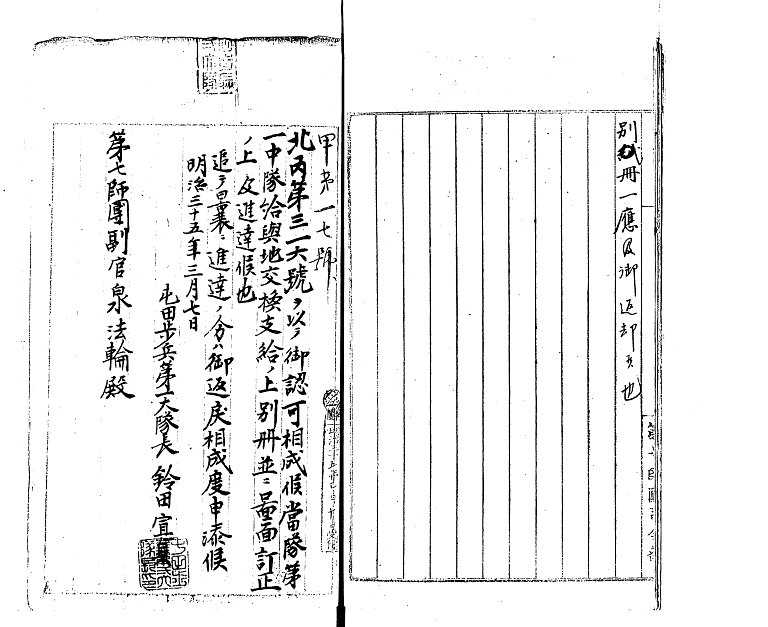 別紙冊一應及御返却候也
甲第一七號
北丙第三一六號ヲ以テ御認可相成候當隊第
一中隊給與地交換支給ノ上別冊並ニ圖面訂正
ノ上及進達候也
追テ曩ニ進達ノ分ハ御返戻相成度申添候
明治三十五年三月七日
屯田歩兵第一大隊長 鈴田宜
第七師團副官泉法輪殿